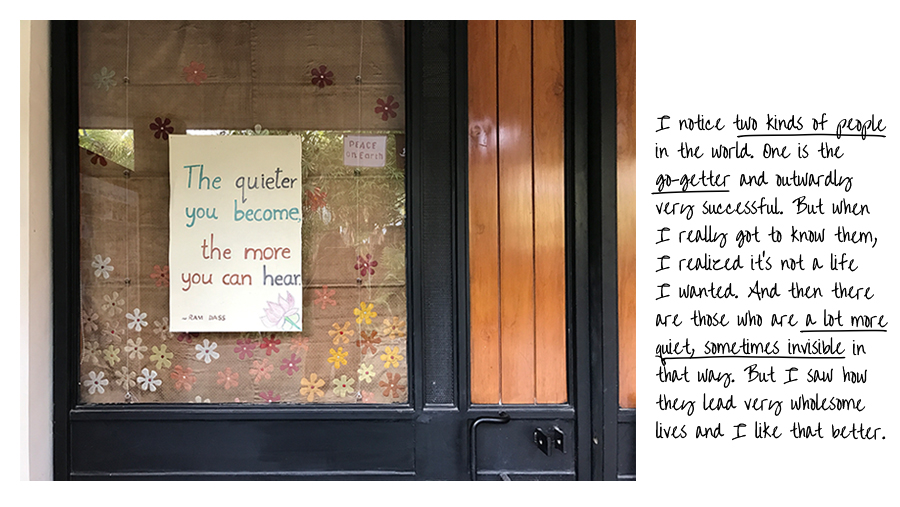 The quieter
you become,
the more
you can hear.
- RAM DASS
PEACE
on Earth
I notice two kinds of people
in the world. One is the
go-getter and outwardly
very successful. But when
I really got to know them,
I realized it's not a life
I wanted. And then there
are those who are a lot more
quiet, sometimes invisible in
that way. But I saw how
they lead very wholesome
lives and I like that better.